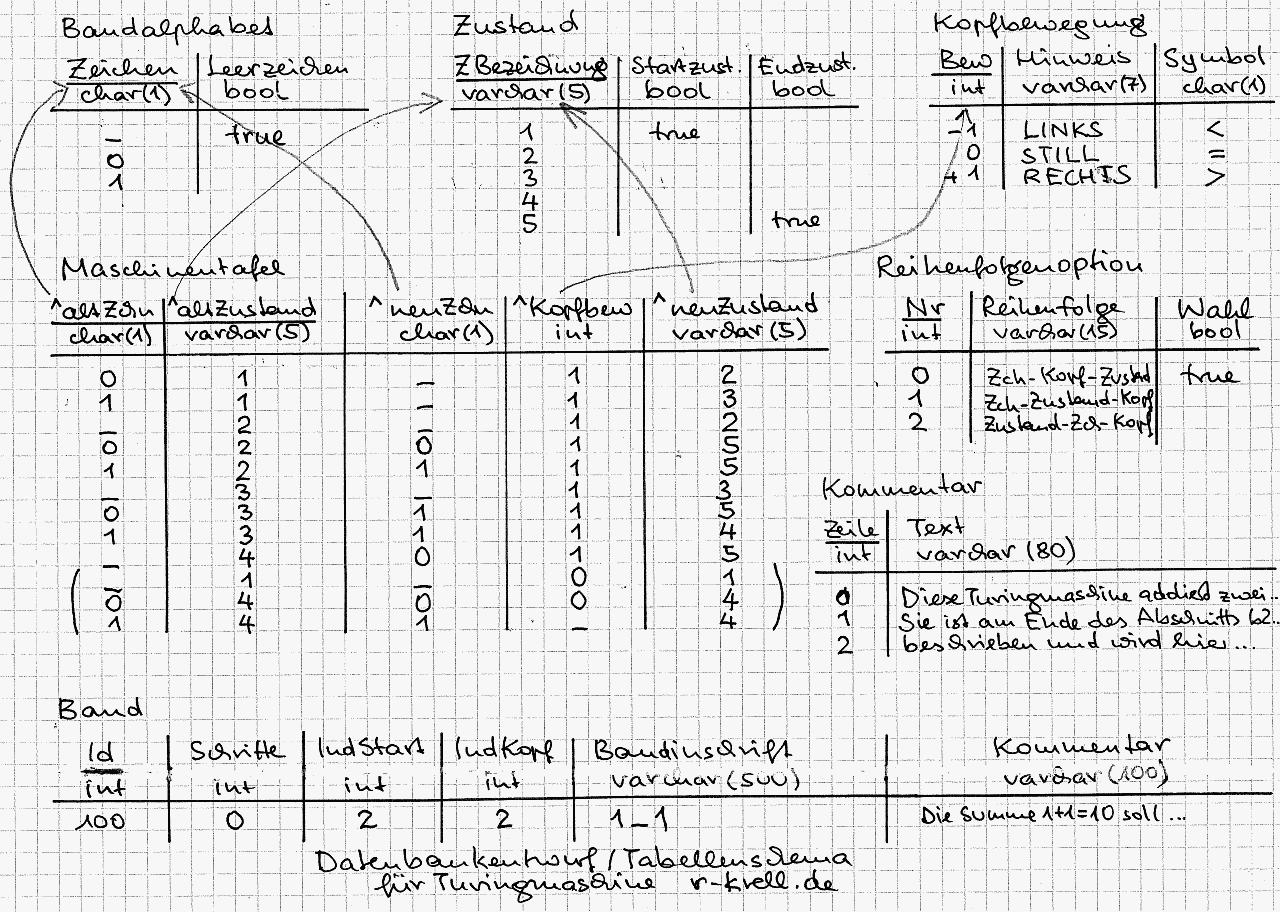 Bandalphabet
Zeichen Leerzeichen
char(1) bool
_ true
0
1
Zustand
ZBezeichnung Startzust. Endzust.
varchar(5) bool bool
1 true
2
3
4
5 true
Kopfbewegung
Bew Hinweis Symbol
int varchar(7) char(1)
-1 LINKS <
0 STILL =
+1 RECHTS >
Maschinentafel
^altZchn ^altZustand ^neuZchn ^Kopfbew ^neuZustand
char(1) varchar(5) char(1) int varchar(5)
0 1 _ 1 2
1 1 _ 1 3
_ 2 _ 1 2
0 2 0 1 5
1 2 1 1 5
_ 3 _ 1 3
0 3 1 1 5
1 3 1 1 4
_ 4 0 1 5
( _ 1 _ 0 1 )
0 4 0 0 4
1 4 1 _ 4
Reihenfolgenoption
Nr Reihenfolge Wahl
int varchar(15) bool
0 Zch-Kopf-Zustd true
1 Zch-Zustand-Kopf
2 Zustand-Zch-Kopf
Kommentar
Zeile Text
int varchar (80)
0 Diese Turingmaschine addiert zwei..
1 Sie ist am Ende des Abschnitts b2..
2 beschrieben und wird hier ...
Band
Id Schritte IndStart IndKopf Bandinschrift Kommentar
int int int int varchar (500) varchar (100)
100 0 2 2 1_1 Die Summe 1+1=10 soll ...
Datenbankentwurf / Tabellenschema
für Turingmaschine r-krell.de